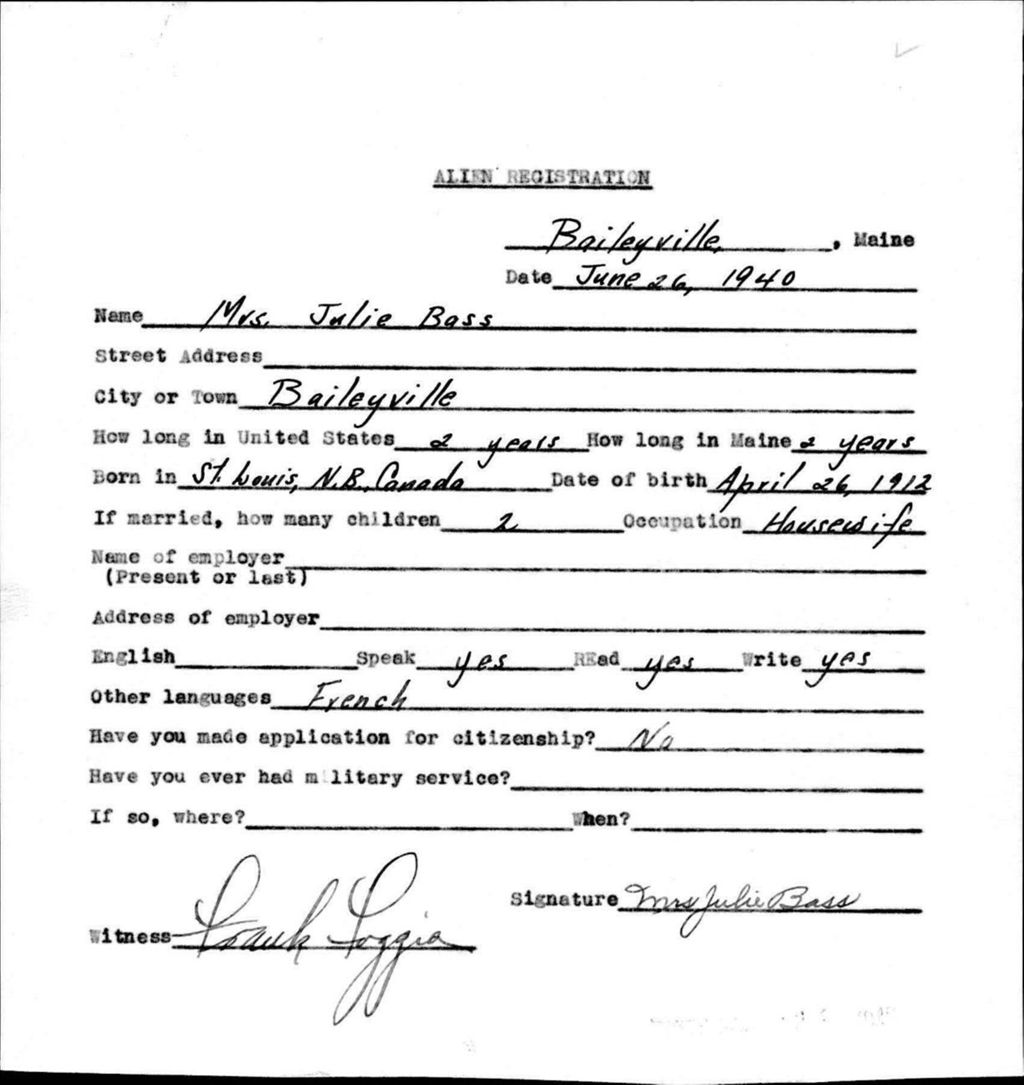 ALIEN REGISTRATION
Baileyville, , Maine
Date June 26, 1940
Name Mrs. Julie Bass
Street Address
City or Town Baileyville
How long in United States 2 years How long in Maine 2 years
Born in St. Louis, N.B. Canada Date of birth April 26, 1912
If married, how many children 2 Occupation Housewife
Name of employer
(Present or last)
Address of employer
English Speak yes REad yes Write yes
Other languages French
Have you made application for citizenship? No
Have you ever had military service?
If so, where? When?
Signature Mrs Julie Bass
Witness Frank Loggia